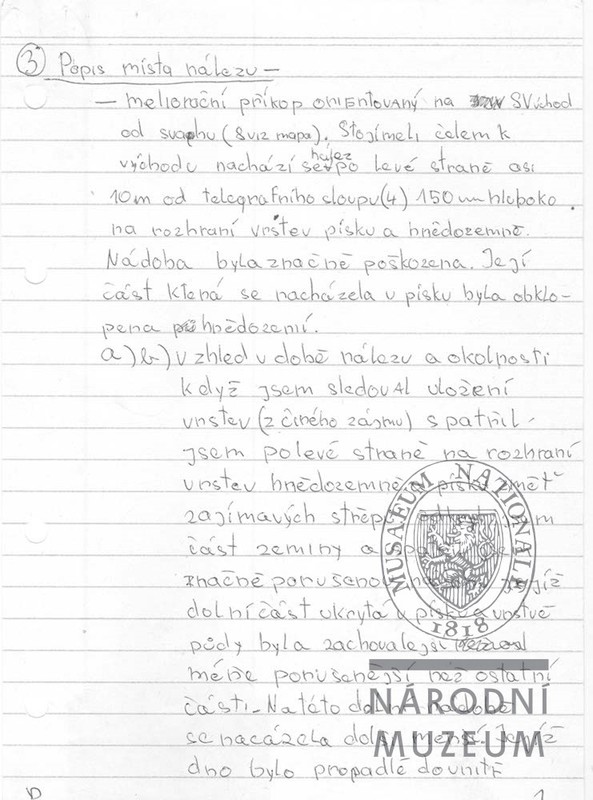 ③ Popis místa nálezu –
– meliorační příkop orientovaný na SVýchod
od svahu (8 viz mapa). Stojímeli čelem k
východu nachází se nález po levé straně asi
10m od telegrafního sloupu (4) 150 hluboko.
na rozhraní vrstev písku a hnědozemně.
Nádoba byla značně poškozena. Její
část která se nacházela v písku byla obklo-
pena hnědozemí.
a) b) Vzhled v době nálezu a okolnosti
když jsem sledoval uložení
vrstev (z činého zájmu) spatřil-
jsem po levé straně na rozhraní
vrstev hnědozemně a písku změť
zajímavých střep
část zeminy a
značně porušenou jejíž
dolní část ukrytá v písku a vrstvě
půdy byla zachovalejší
méně porušenější než ostatní
části – Na této dolní nádobě
se nacázela další menší. Jejíž
dno bylo propadlé dovnitř
MUSAEUM NATIONALE
1818
NÁRODNÍ
MUZEUM